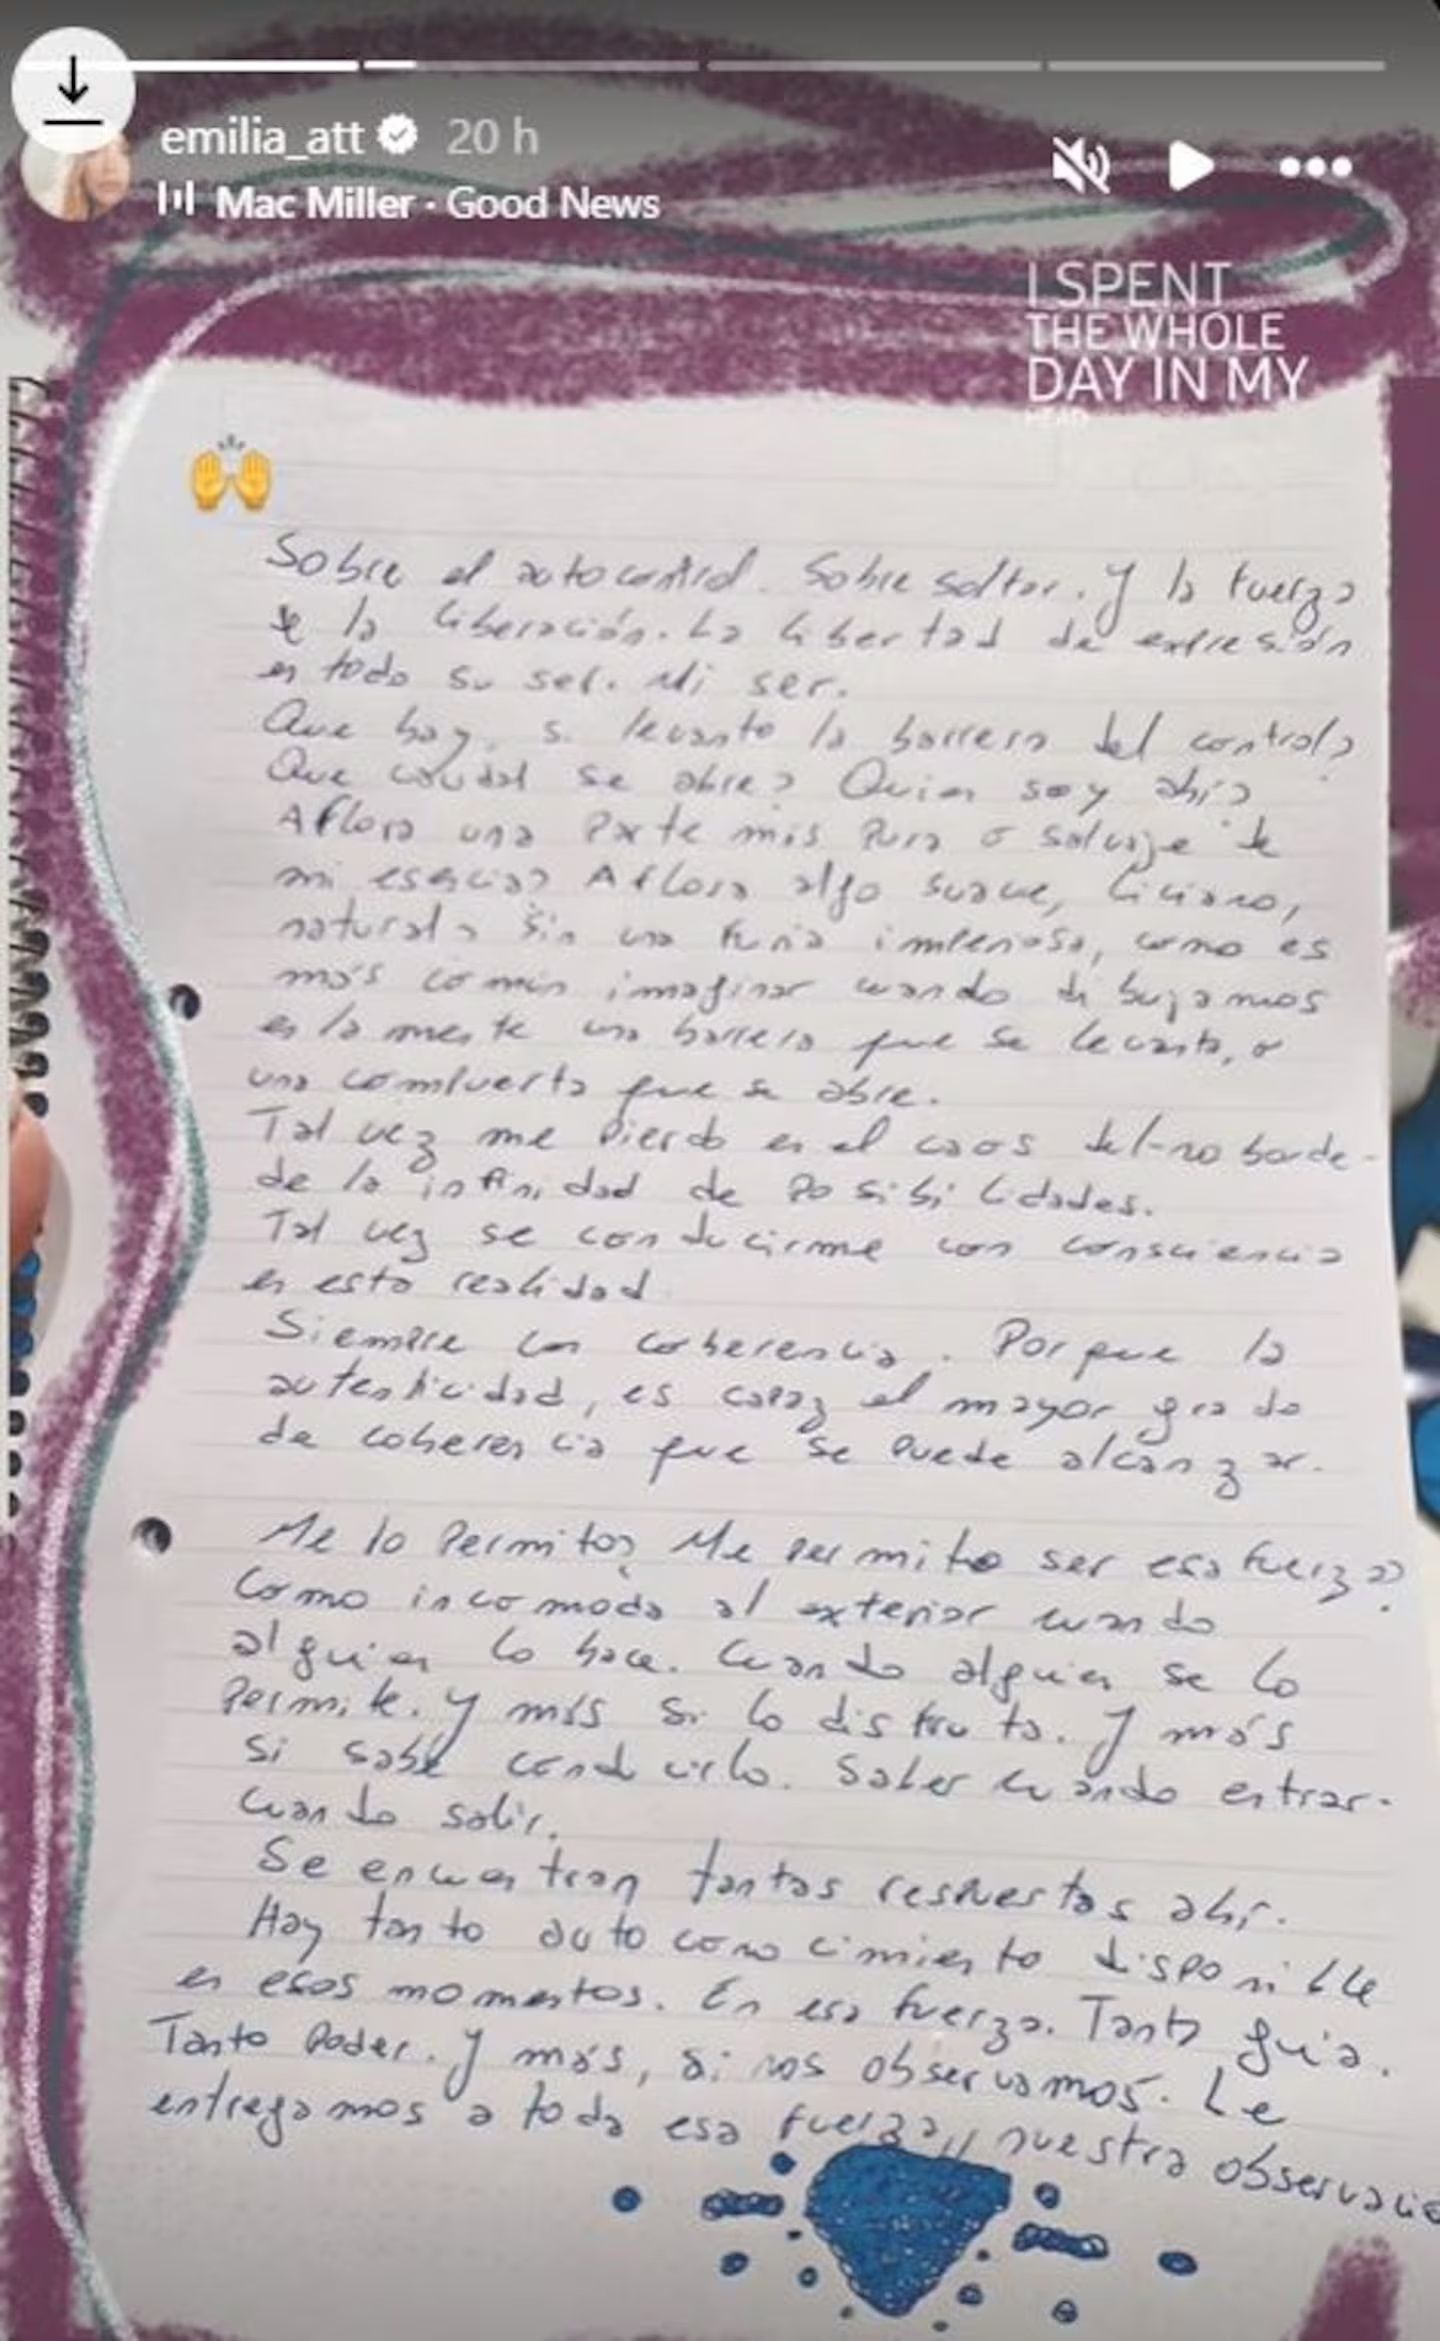 emilia_att 20 h
Mac Miller · Good News
I SPENT
THE WHOLE
DAY IN MY
HEAD
Sobre el autocontrol. Sobre soltar. Y la fuerza
de la liberación. La libertad de expresión
en todo su ser. Mi ser.
Que hay, si levanto la barrera del control?
Que caudal se abre? Quien soy ahí?
Aflora una parte más pura o salvaje de
mi esencia? Aflora algo suave, liviano,
natural? Sin una furia impetuosa, como es
más común imaginar cuando dibujamos
en la mente una barrera que se levanta, o
una compuerta que se abre.
Tal vez me pierdo en el caos del-no borde-
de la infinidad de posibilidades.
Tal vez se conducirme con consciencia
en esta realidad.
Siempre con coherencia. Porque la
autenticidad, es capaz el mayor grado
de coherencia que se puede alcanzar.
Me lo permito? Me permito ser esa fuerza?
Como incomoda al exterior cuando
alguien lo hace. Cuando alguien se lo
permite. Y más si lo disfruta. Y más
si sabe conducirlo. Saber cuando entrar.
cuando salir.
Se encuentran tantas respuestas ahí.
Hay tanto autoconocimiento disponible
en esos momentos. En esa fuerza. Tanta guía.
Tanto poder. Y más, si nos observamos. Le
entregamos a toda esa fuerza,, nuestra observació